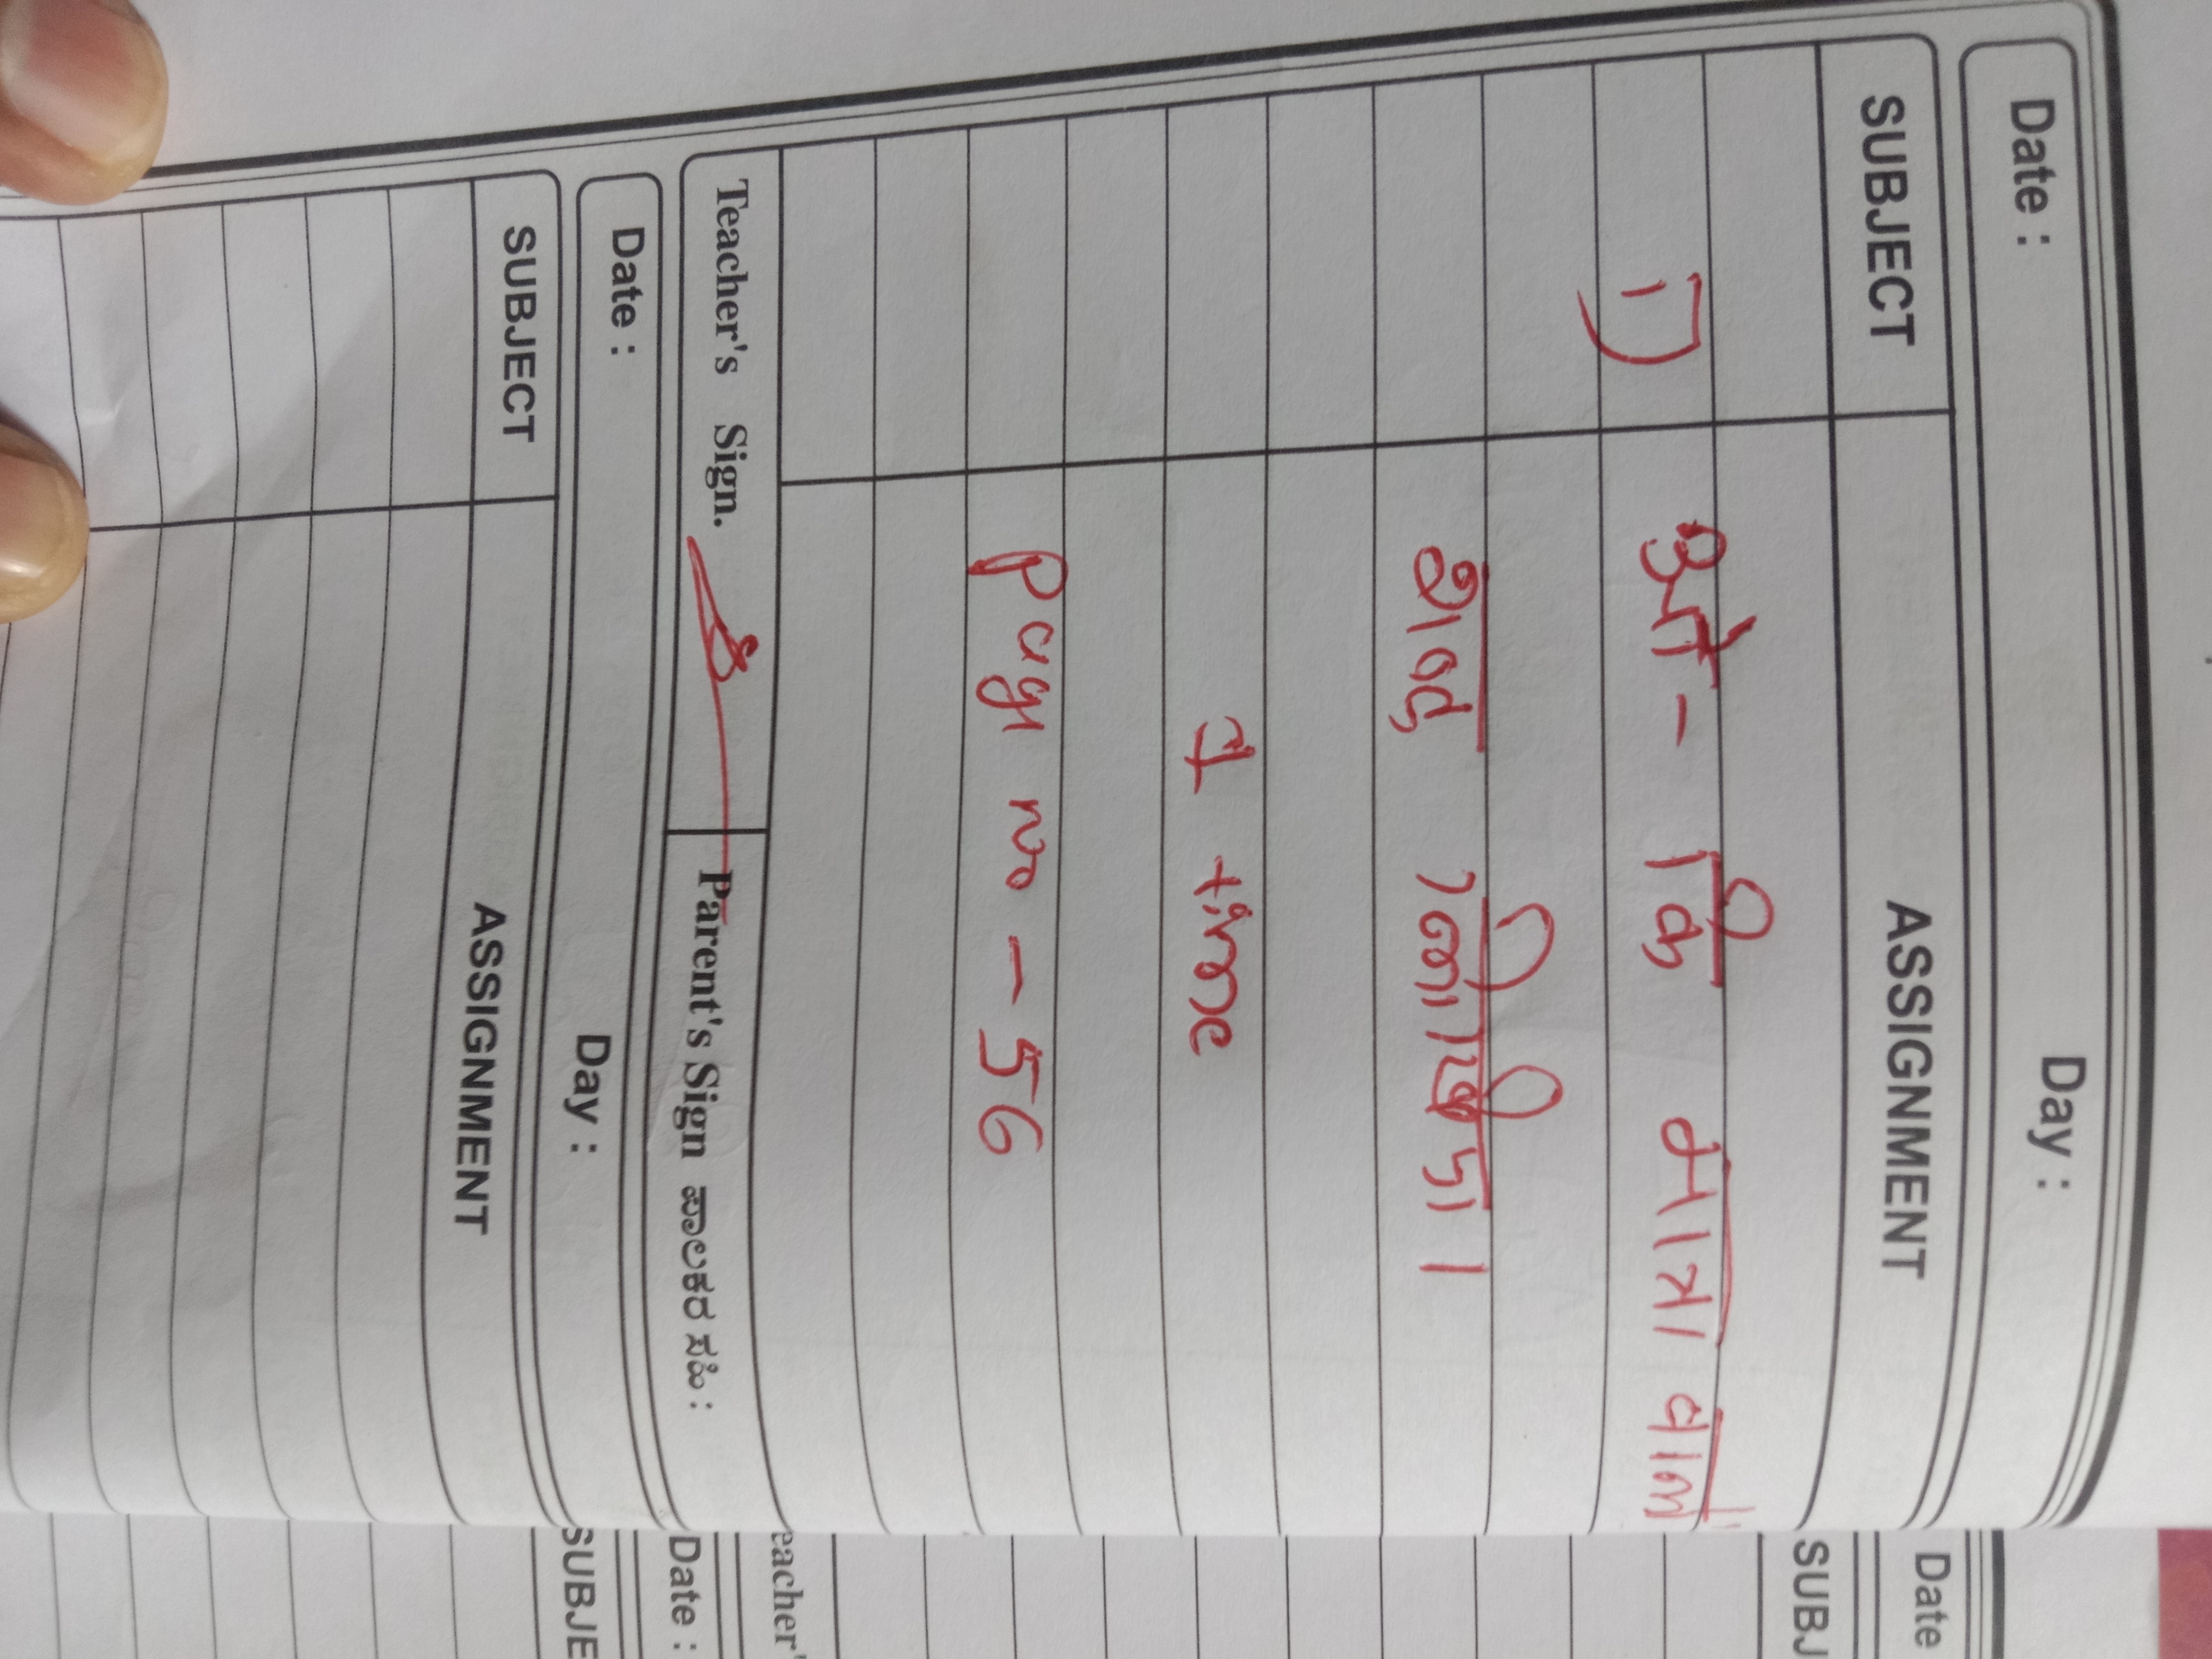 Date : Day :
SUBJECT ASSIGNMENT
1) - कि मात्रा वाले
शब्द लिखिए।
1 time
Page no - 56
Teacher's Sign. Parent's Sign ಪಾಲಕರ ಸಹಿ :
Date : Day :
SUBJECT ASSIGNMENT
Date
SUBJ
eacher'
Date :
SUBJE